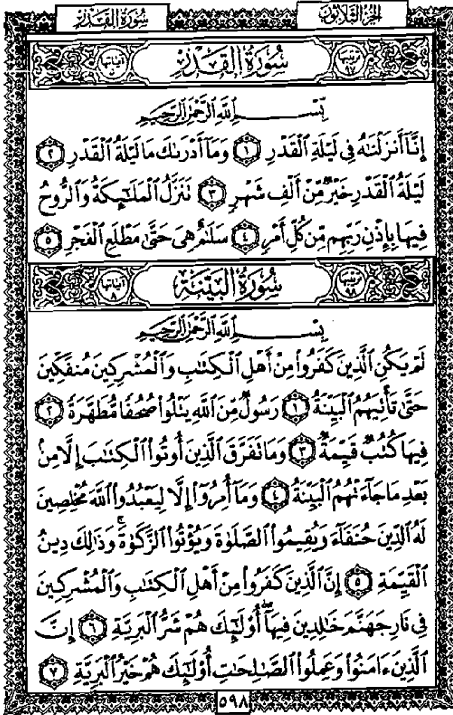 سُورَةُ القَدْرِ الجُزْءُ الثَّلَاثُونَ
سُورَةُ القَدْرِ
بِسْمِ اللَّهِ الرَّحْمَٰنِ الرَّحِيمِ
إِنَّا أَنزَلْنَاهُ فِي لَيْلَةِ الْقَدْرِ ١ وَمَا أَدْرَاكَ مَا لَيْلَةُ الْقَدْرِ ٢
لَيْلَةُ الْقَدْرِ خَيْرٌ مِّنْ أَلْفِ شَهْرٍ ٣ تَنَزَّلُ الْمَلَائِكَةُ وَالرُّوحُ
فِيهَا بِإِذْنِ رَبِّهِم مِّن كُلِّ أَمْرٍ ٤ سَلَامٌ هِيَ حَتَّىٰ مَطْلَعِ الْفَجْرِ ٥
سُورَةُ البَيِّنَةِ
بِسْمِ اللَّهِ الرَّحْمَٰنِ الرَّحِيمِ
لَمْ يَكُنِ الَّذِينَ كَفَرُوا مِنْ أَهْلِ الْكِتَابِ وَالْمُشْرِكِينَ مُنفَكِّينَ
حَتَّىٰ تَأْتِيَهُمُ الْبَيِّنَةُ ١ رَسُولٌ مِّنَ اللَّهِ يَتْلُو صُحُفًا مُّطَهَّرَةً ٢
فِيهَا كُتُبٌ قَيِّمَةٌ ٣ وَمَا تَفَرَّقَ الَّذِينَ أُوتُوا الْكِتَابَ إِلَّا مِن
بَعْدِ مَا جَاءَتْهُمُ الْبَيِّنَةُ ٤ وَمَا أُمِرُوا إِلَّا لِيَعْبُدُوا اللَّهَ مُخْلِصِينَ
لَهُ الدِّينَ حُنَفَاءَ وَيُقِيمُوا الصَّلَوٰةَ وَيُؤْتُوا الزَّكَوٰةَ ۚ وَذَٰلِكَ دِينُ
الْقَيِّمَةِ ٥ إِنَّ الَّذِينَ كَفَرُوا مِنْ أَهْلِ الْكِتَابِ وَالْمُشْرِكِينَ
فِي نَارِ جَهَنَّمَ خَالِدِينَ فِيهَا ۚ أُولَٰئِكَ هُمْ شَرُّ الْبَرِيَّةِ ٦ إِنَّ
الَّذِينَ ءَامَنُوا وَعَمِلُوا الصَّالِحَاتِ أُولَٰئِكَ هُمْ خَيْرُ الْبَرِيَّةِ ٧
٥٩٨